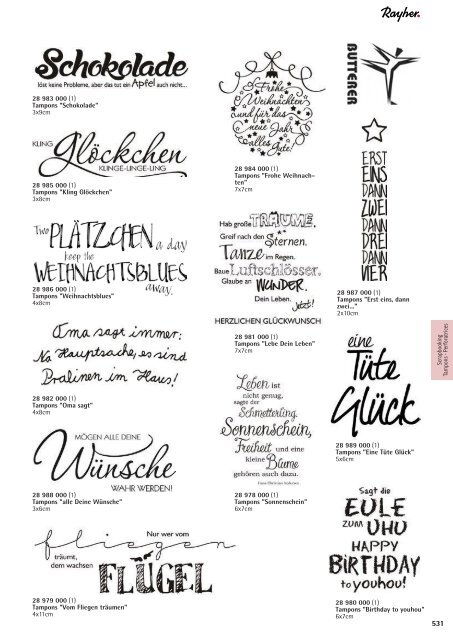 Rayher.
Schokolade
löst keine Probleme, aber das tut ein Apfel auch nicht...
28 983 000 (1)
Tampons "Schokolade"
3x9cm
KLING
Glöckchen
KLINGE-LINGE-LING
28 985 000 (1)
Tampons "Kling Glöckchen"
3x8cm
Two PLÄTZCHEN a day
keep the
WEIHNACHTSBLUES
away.
28 986 000 (1)
Tampons "Weihnachtsblues"
4x8cm
Oma sagt immer:
Na Hauptsache, es sind
Pralinen im Haus!
28 982 000 (1)
Tampons "Oma sagt"
4x8cm
MÖGEN ALLE DEINE
Wünsche
WAHR WERDEN!
28 988 000 (1)
Tampons "alle Deine Wünsche"
3x6cm
Nur wer vom
fliegen
träumt,
dem wachsen
FLÜGEL
28 979 000 (1)
Tampons "Vom Fliegen träumen"
4x11cm
Frohe
Weihnachten
und für das
neue Jahr
alles Gute!
28 984 000 (1)
Tampons "Frohe Weihnach-
ten"
7x7cm
Hab große TRÄUME.
Greif nach den Sternen.
Tanze im Regen.
Baue Luftschlösser.
Glaube an WUNDER.
Dein Leben.
Jetzt!
HERZLICHEN GLÜCKWUNSCH
28 981 000 (1)
Tampons "Lebe Dein Leben"
7x7cm
Leben ist
nicht genug,
sagte der
Schmetterling.
Sonnenschein,
Freiheit und eine
kleine Blume
gehören auch dazu.
Hans Christian Andersen
28 978 000 (1)
Tampons "Sonnenschein"
6x7cm
BUTTERER
ERST
EINS
DANN
ZWEI
DANN
DREI
DANN
VIER
28 987 000 (1)
Tampons "Erst eins, dann
zwei..."
2x10cm
eine
Tüte
Glück
28 989 000 (1)
Tampons "Eine Tüte Glück"
5x6cm
Sagt die
EULE
ZUM UHU
HAPPY
BIRTHDAY
to youhou!
28 980 000 (1)
Tampons "Birthday to youhou"
6x7cm
Scrapbooking
Tampons - Perforatrices
531